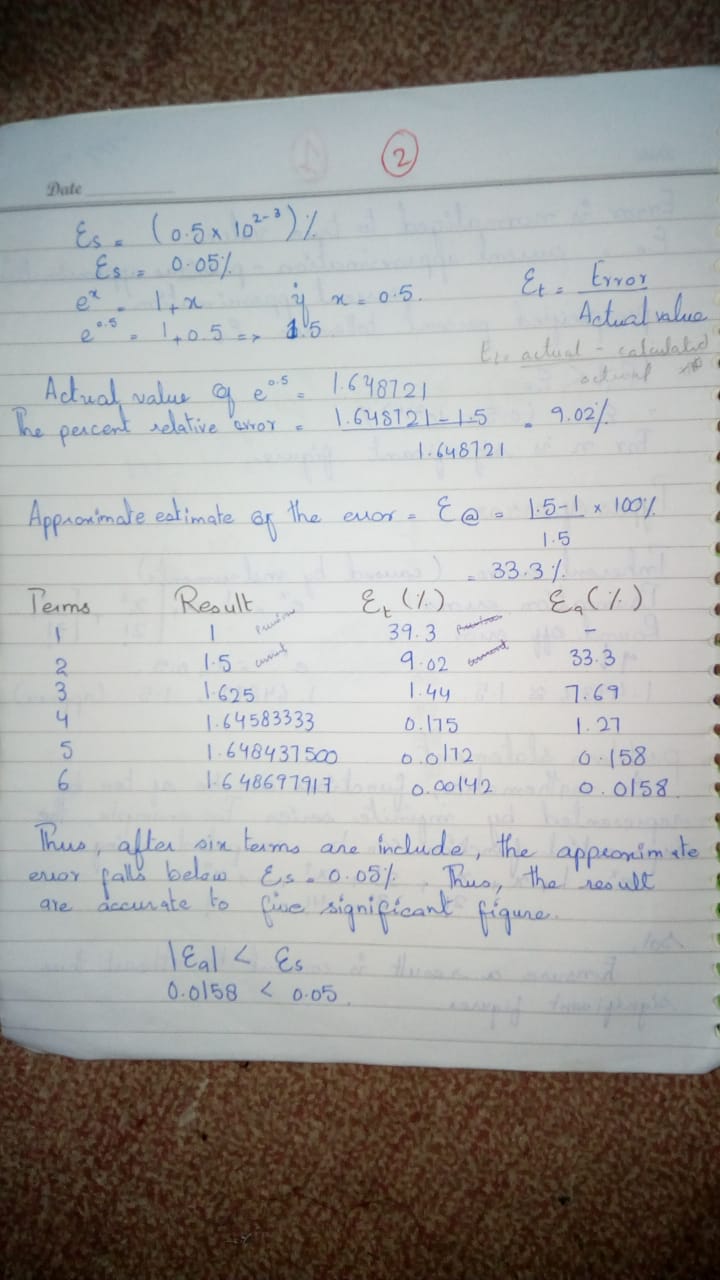 2
Date
Es = (0.5 x 10²⁻³)%
Es = 0.05%
eˣ = 1+x if x = 0.5.
Et = Error / Actual value
e⁰·⁵ = 1+0.5 => 1.5
Et = actual - calculated / actual
Actual value of e⁰·⁵ = 1.648721
The percent relative error = 1.648721-1.5 / 1.648721 = 9.02%
Approximate estimate of the error = Ea = 1.5-1 / 1.5 x 100%
= 33.3%
Terms Result Et (%) Ea (%)
1 1 Previous 39.3 Previous -
2 1.5 current 9.02 current 33.3
3 1.625 1.44 7.69
4 1.64583333 0.175 1.27
5 1.648437500 0.0172 0.158
6 1.648697917 0.00142 0.0158
Thus, after six terms are include, the approximate
error falls below Es = 0.05%. Thus, the result
are accurate to five significant figure.
|Ea| < Es
0.0158 < 0.05.